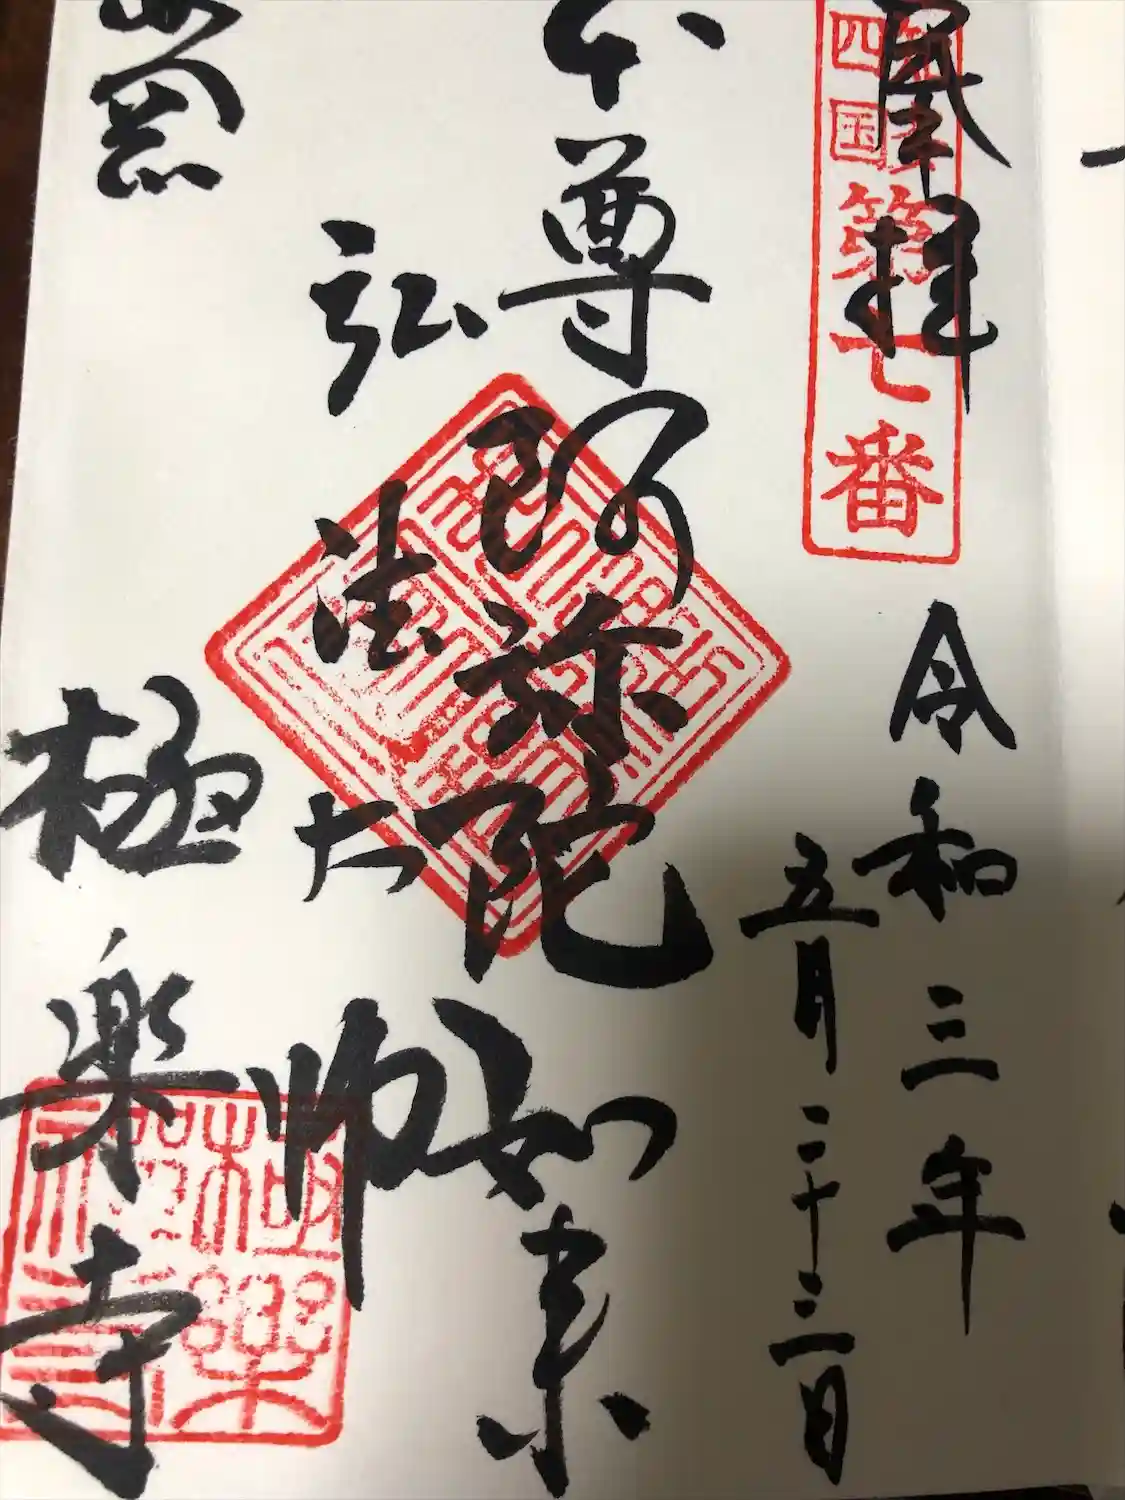 奉拝
四国
第七番
令和三年
五月二十三日
本尊阿弥陀如来
弘法大師
岡
極楽寺